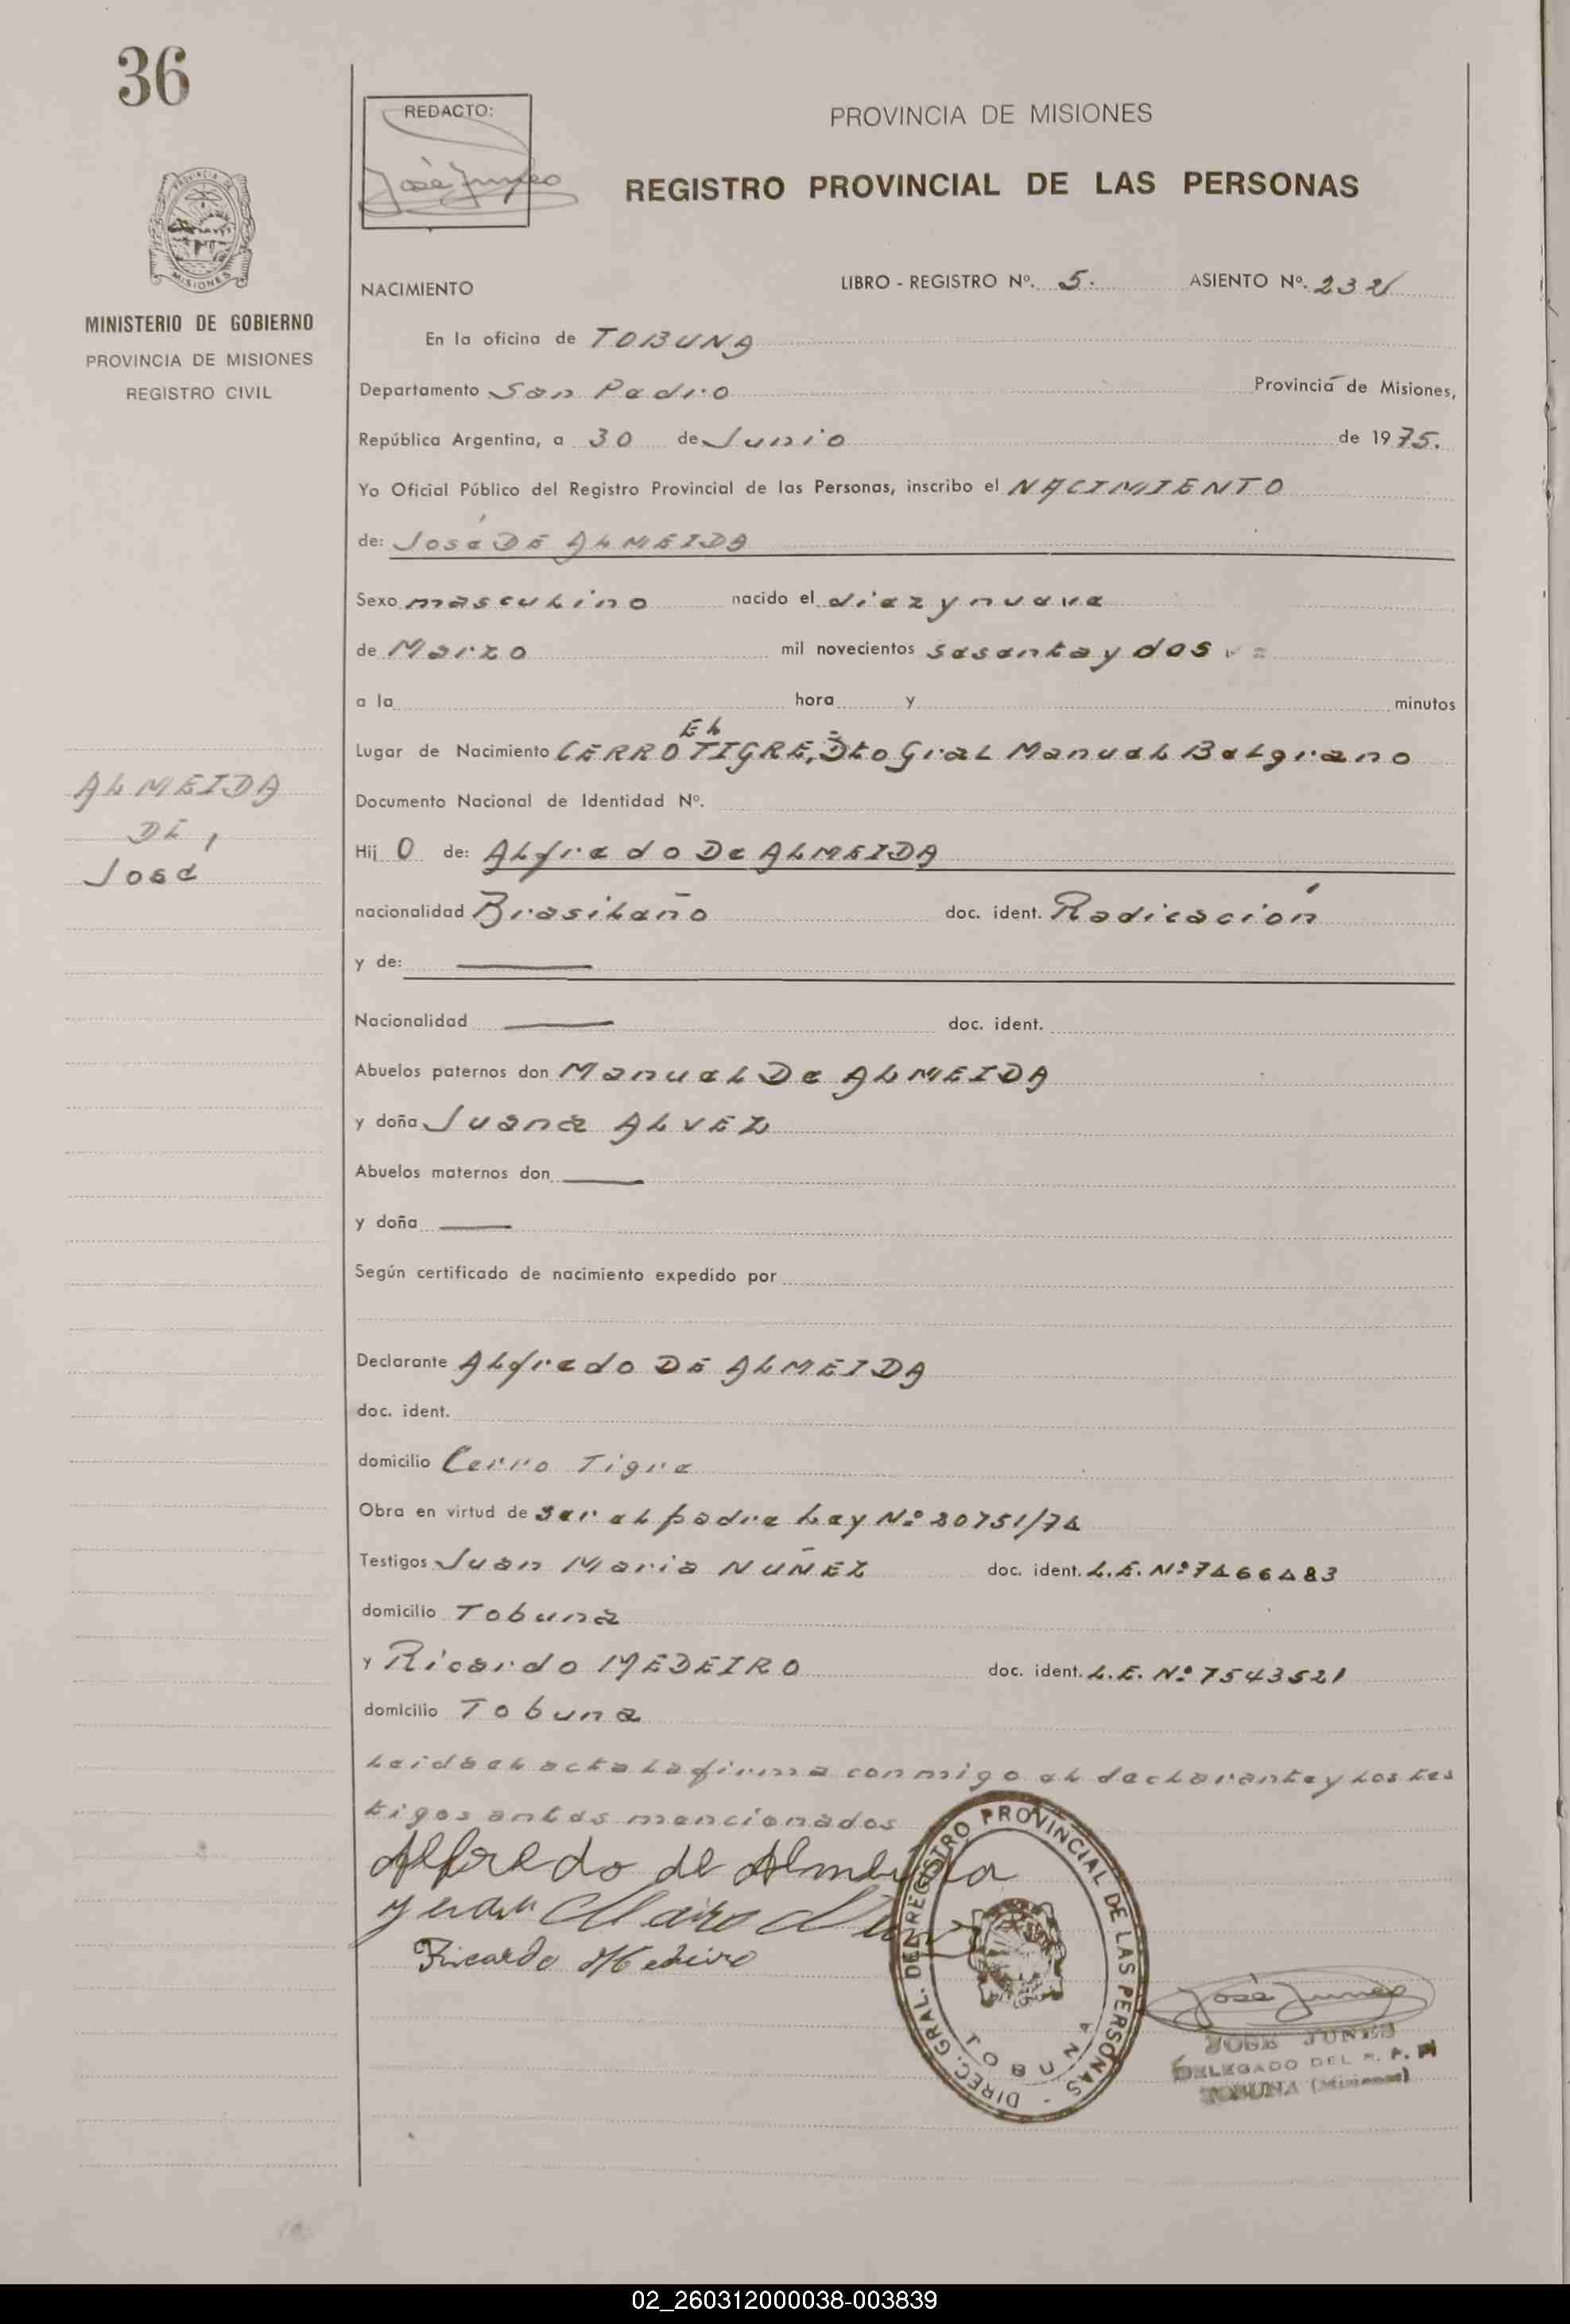 36
REDACTO:
PROVINCIA DE MISIONES
REGISTRO PROVINCIAL DE LAS PERSONAS
MISIONES
MINISTERIO DE GOBIERNO
PROVINCIA DE MISIONES
REGISTRO CIVIL
NACIMIENTO LIBRO - REGISTRO Nº. 5. ASIENTO Nº.
En la oficina de TOBUNA
Departamento San Pedro Provincia de Misiones,
República Argentina, a 30 de Junio de 1975.
Yo Oficial Público del Registro Provincial de las Personas, inscribo el NACIMIENTO
de: José DE ALMEIDA
Sexo masculino nacido el diez y nueve
de Marzo mil novecientos sesenta y dos
a la hora y minutos
El
Lugar de Nacimiento CERRO TIGRE, Dto Gral Manuel Belgrano
ALMEIDA
DE,
José
Documento Nacional de Identidad Nº.
Hij O de: Alfredo De ALMEIDA
nacionalidad Brasileño doc. ident. Radicación
y de:
Nacionalidad doc. ident.
Abuelos paternos don Manuel De ALMEIDA
y doña Juana ALVEZ
Abuelos maternos don
y doña
Según certificado de nacimiento expedido por
Declarante Alfredo DE ALMEIDA
doc. ident.
domicilio Cerro Tigre
Obra en virtud de ser el padre Ley Nº 20751/74
Testigos Juan Maria NUÑEZ doc. ident. L.E. Nº 7466483
domicilio Tobuna
y Ricardo MEDEIRO doc. ident. L.E. Nº 7543521
domicilio Tobuna
Leida el acta la firma conmigo el declarante y los tes
tigos antes mencionados
Alfredo de Almeida
Ricardo Medeiro
DIREC. GRAL. DEL REGISTRO PROVINCIAL DE LAS PERSONAS -
TOBUNA
José Junes
JOSE JUNES
DELEGADO DEL R. P. P.
TOBUNA (Misiones)
02_260312000038-003839